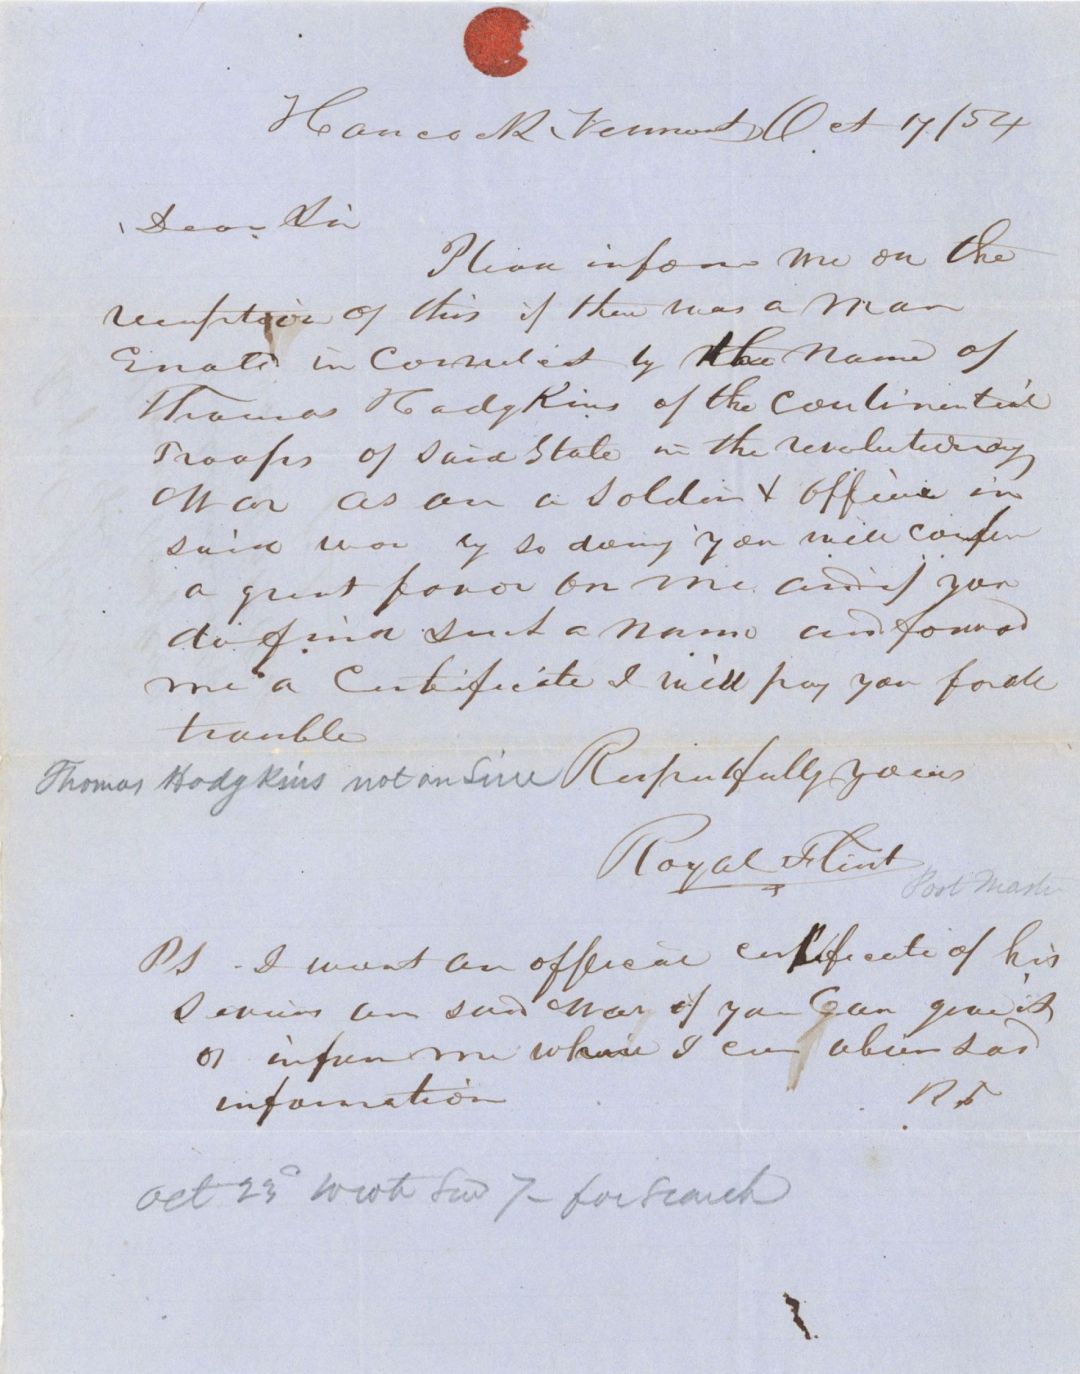 Hancock Vermont Oct 17/54
Dear Sir
Please inform me on the
reception of this if there was a Man
in by the Name of
Thomas Hodgkins of the Continental
Troops of Said State in the revolutionary
War as an a Soldier & officer in
said war by so doing you will confer
a great favor on me and if you
do find such a Name and forward
me a Certificate I will pay you for all
trouble
Thomas Hodgkins not on
Respectfully yours
Royal Flint
Post Master
PS - I want an official certificate of his
Servises in said War if you Can give it
or inform me where I can said
information
RF
Oct 23d wrote for Search